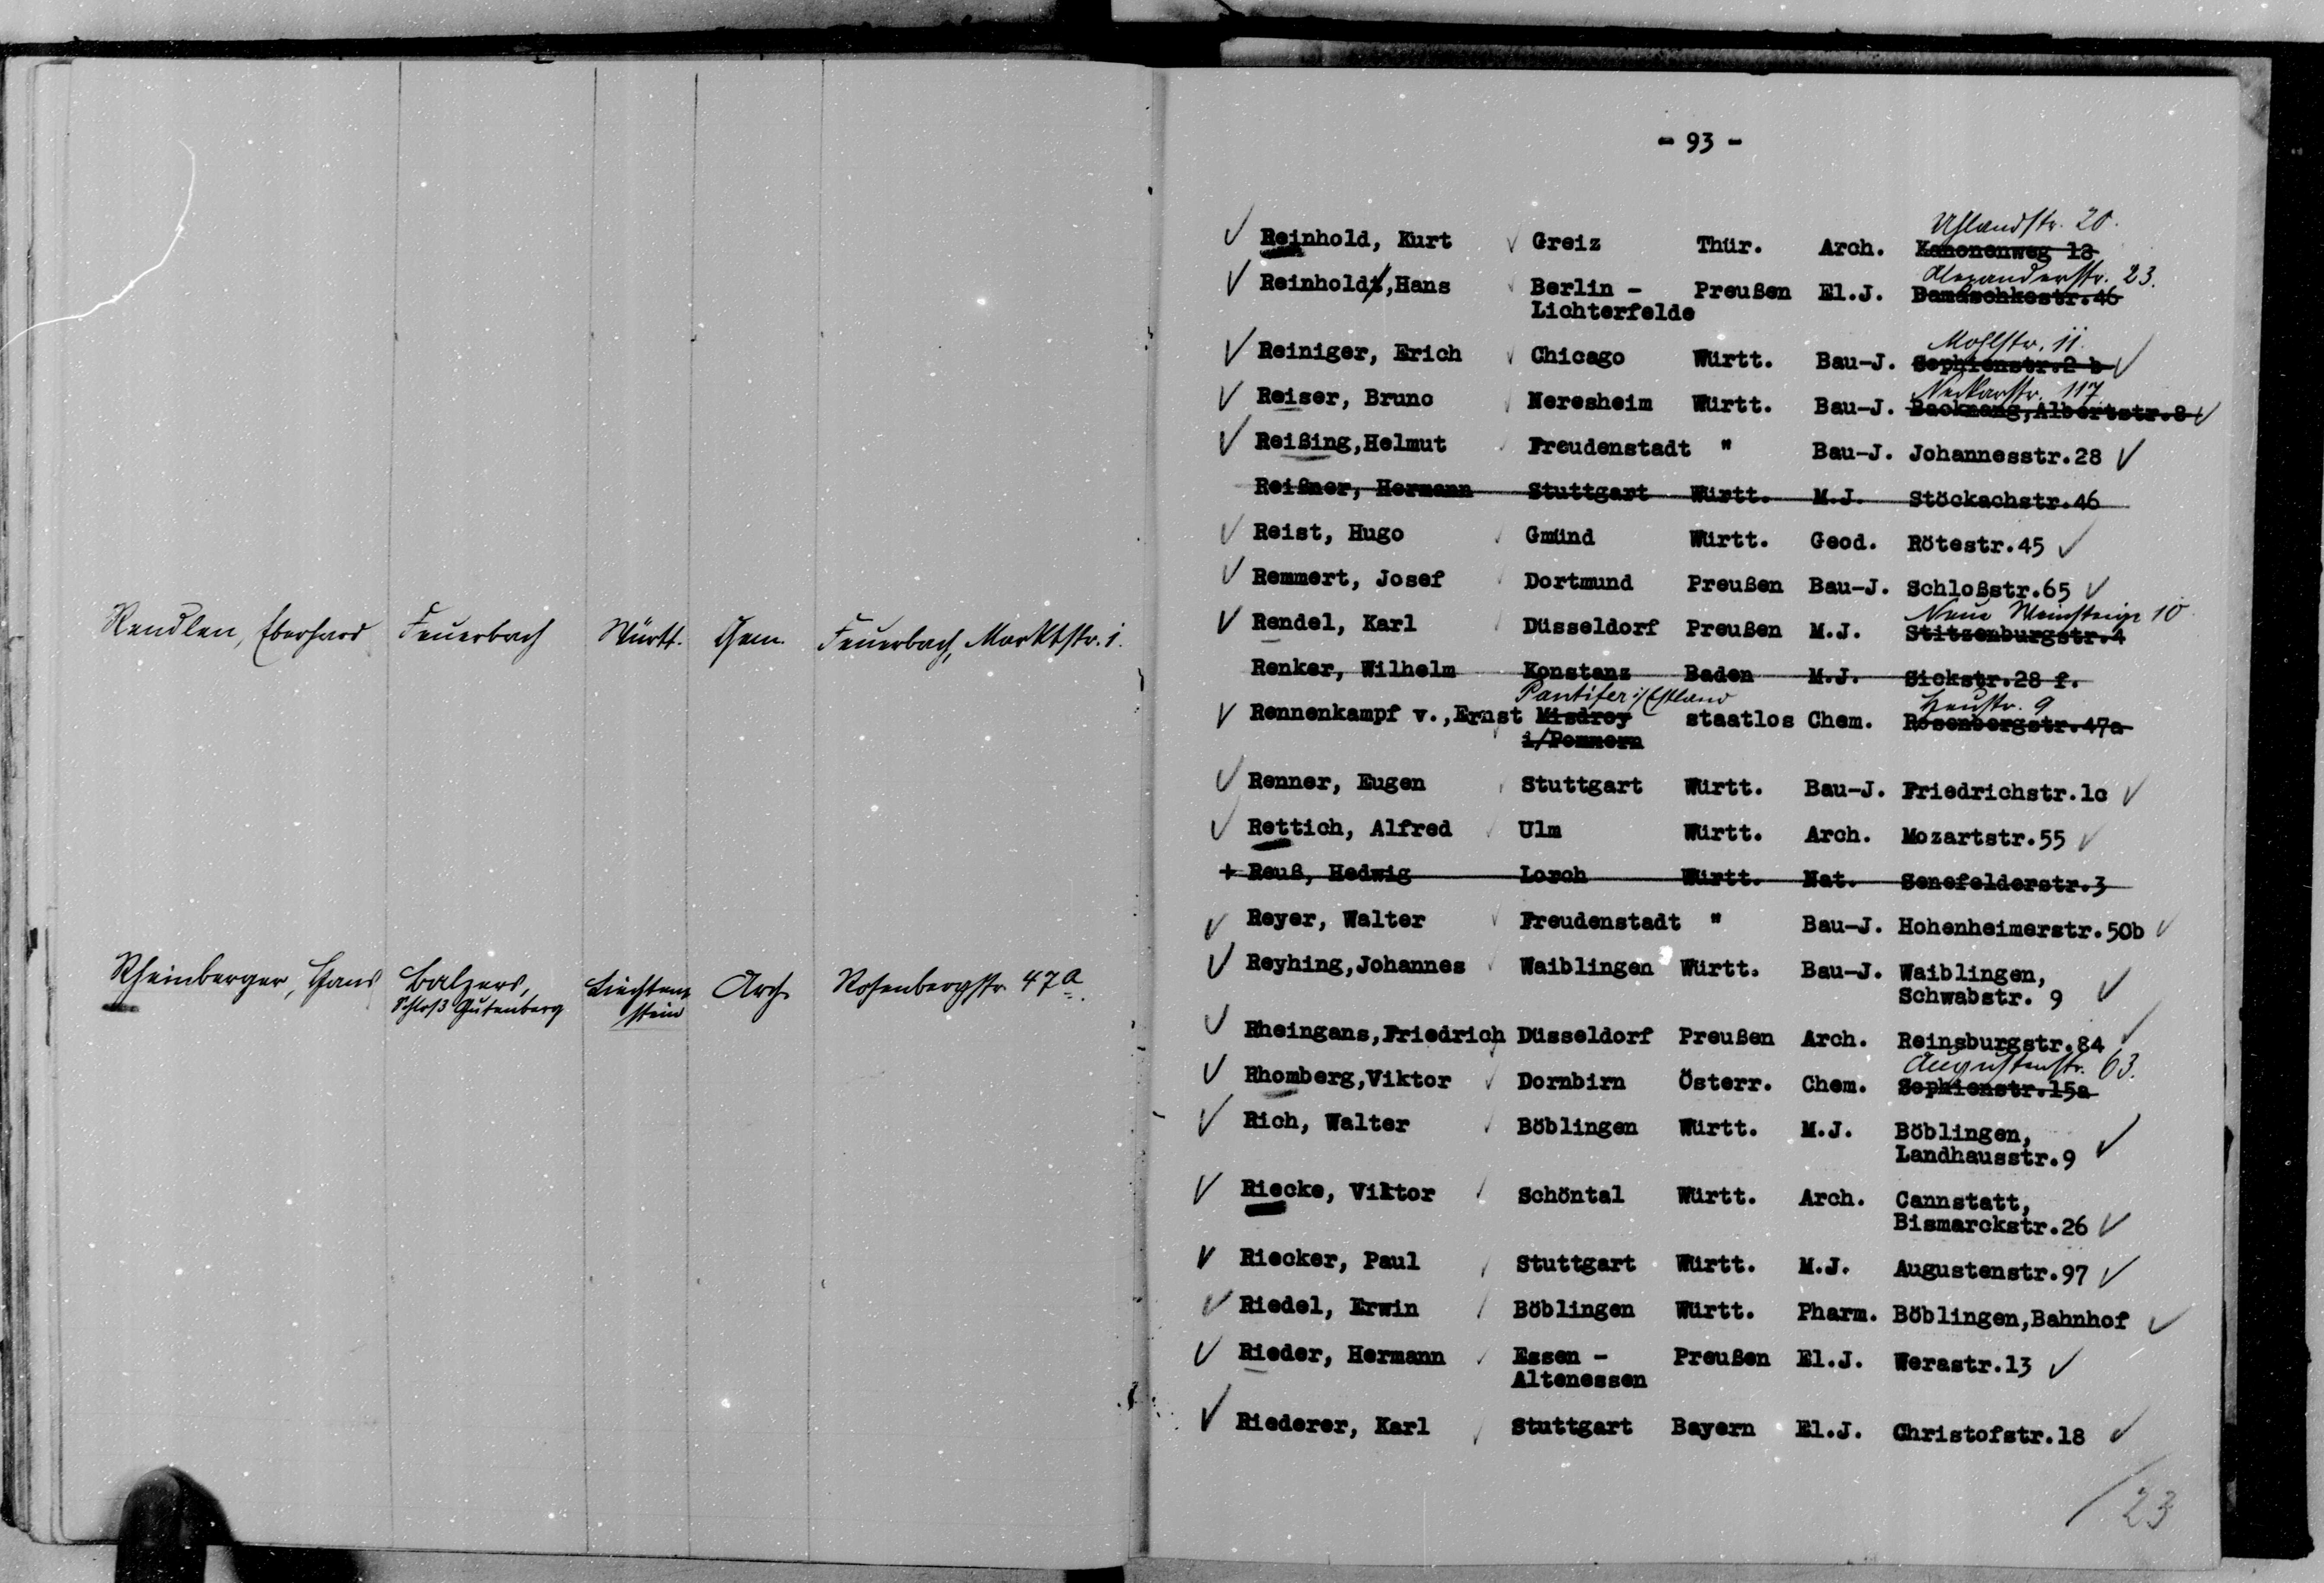 Rendlen, Eberhard Feuerbach Württ. Chem. Feuerbach, Marktstr. 1.
Rheinberger, Hans Balzers, Liechten- Arch. Rosenbergstr. 47a.
Schloß Gutenberg stein
- 93 -
Uhlandstr. 20.
✓ Reinhold, Kurt ✓ Greiz Thür. Arch. Kanonenweg 13
Alexanderstr. 23.
✓ Reinholdt,Hans ✓ Berlin - Preußen El.J. Damaschkestr.46
Lichterfelde
Mohlstr. 11.
✓ Reiniger, Erich ✓ Chicago Württ. Bau-J. Sophienstr.2 b ✓
Neckarstr. 117
✓ Reiser, Bruno ✓ Neresheim Württ. Bau-J. Backnang,Albertstr.8 ✓
✓ Reißing,Helmut ✓ Freudenstadt " Bau-J. Johannesstr.28 ✓
Reißner, Hermann Stuttgart Württ. M.J. Stöckachstr.46
✓ Reist, Hugo ✓ Gmünd Württ. Geod. Rötestr.45 ✓
✓ Remmert, Josef ✓ Dortmund Preußen Bau-J. Schloßstr.65 ✓
Neue Weinsteige 10
✓ Rendel, Karl ✓ Düsseldorf Preußen M.J. Stitzenburgstr.4
Renker, Wilhelm Konstanz Baden M.J. Sickstr.28 f.
Pantifer i/Estland Heustr. 9
✓ Rennenkampf v.,Ernst Misdroy staatlos Chem. Rosenbergstr.47a
✓ i/Pommern
✓ Renner, Eugen ✓ Stuttgart Württ. Bau-J. Friedrichstr.1c ✓
✓ Rettich, Alfred ✓ Ulm Württ. Arch. Mozartstr.55 ✓
+ Reuß, Hedwig Lorch Württ. Nat. Senefelderstr.3
✓ Reyer, Walter ✓ Freudenstadt " Bau-J. Hohenheimerstr.50b ✓
✓ Reyhing,Johannes ✓ Waiblingen Württ. Bau-J. Waiblingen,
Schwabstr. 9 ✓
✓ Rheingans,Friedrich ✓ Düsseldorf Preußen Arch. Reinsburgstr.84 ✓
Augustenstr. 63.
✓ Rhomberg,Viktor ✓ Dornbirn Österr. Chem. Sophienstr.15a
✓ Rich, Walter ✓ Böblingen Württ. M.J. Böblingen,
Landhausstr.9 ✓
✓ Riecke, Viktor ✓ Schöntal Württ. Arch. Cannstatt,
Bismarckstr.26 ✓
✓ Riecker, Paul ✓ Stuttgart Württ. M.J. Augustenstr.97 ✓
✓ Riedel, Erwin ✓ Böblingen Württ. Pharm. Böblingen,Bahnhof ✓
✓ Rieder, Hermann ✓ Essen - Preußen El.J. Werastr.13 ✓
Altenessen
✓ Riederer, Karl ✓ Stuttgart Bayern El.J. Christofstr.18 ✓
/23